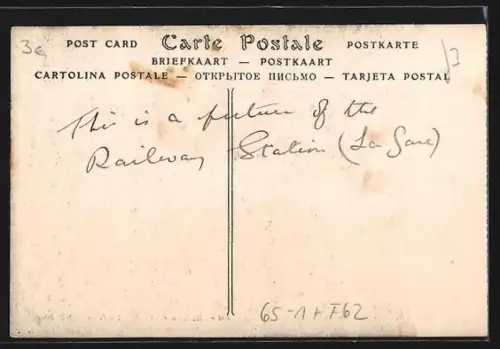 POST CARD Carte Postale POSTKARTE
BRIEFKAART — POSTKAART
CARTOLINA POSTALE — ОТКРЫТОЕ ПИСЬМО — TARJETA POSTAL
This is a picture of the
Railway Station (La Gare)